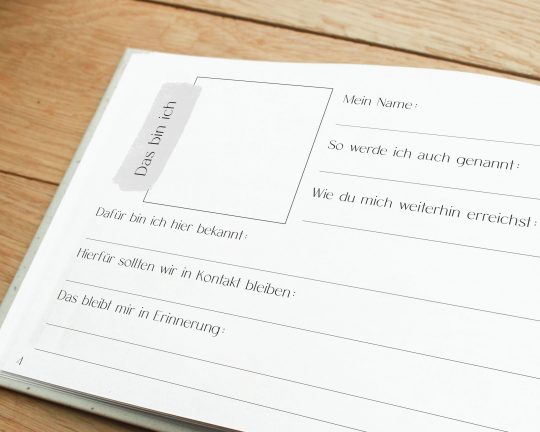 Das bin ich
Mein Name:
So werde ich auch genannt:
Wie du mich weiterhin erreichst:
Dafür bin ich hier bekannt:
Hierfür sollten wir in Kontakt bleiben:
Das bleibt mir in Erinnerung:
4